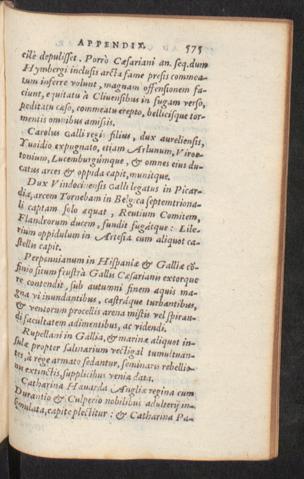 APPENDIX. 575
esse depulisset. Porrò Cæsariani an. seq. dum
Hymbergi inclusis arcta fame presis commea-
tum inferre volunt, magnam offensionem fa-
ciunt, equitatu à Cliuensibus in fugam verso,
peditatu cæso, commeatu erepto, bellicisque tor-
mentis omnibus amissis.
Carolus Galli regis filius, dux aureliensis,
Yuoidio expugnato, etiam Arlunum, Viroe-
tonium, Lucemburgúmque, & omnes eius du-
catus arces & oppida capit, munitque.
Dux Vindocinensis Galli legatus in Picar-
dia, arcem Tornebam in Belgica septemtriona-
li captam solo æquat, Reutium Comitem,
Flandrorum ducem, fundit fugátque: Lile-
rium oppidulum in Artesia cum aliquot ca-
stellis capit.
Perpinianum in Hispaniæ & Galliæ cō-
finio situm frustrà Gallis Cæsarianis extorque
re contendit, sub autumni finem aquis ma-
gna vi inundantibus, castráque turbantibus,
& ventorum procellis arena mistis vel spiran-
di facultatem adimentibus, ac videndi.
Rupellani in Gallia, & marinæ aliquot in-
sulæ propter salinarium vectigal tumultuan-
tes, à rege armato sedantur, seminariis rebellio-
nis extinctis, supplicibus venia data.
Catharina Hauarda Angliæ regina cum
Durantio & Culperio nobilibus adulterij in-
simulata, capite plectitur: & Catharina Pa-